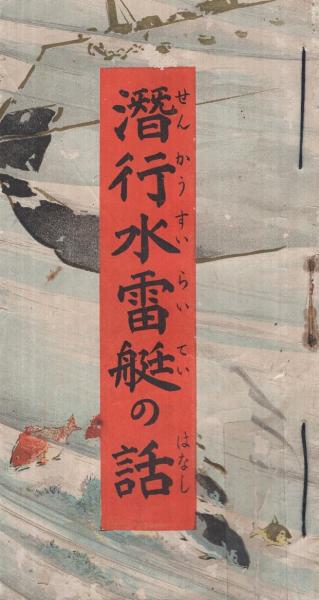 潛行水雷艇の話
せんかうすいらいてい はなし